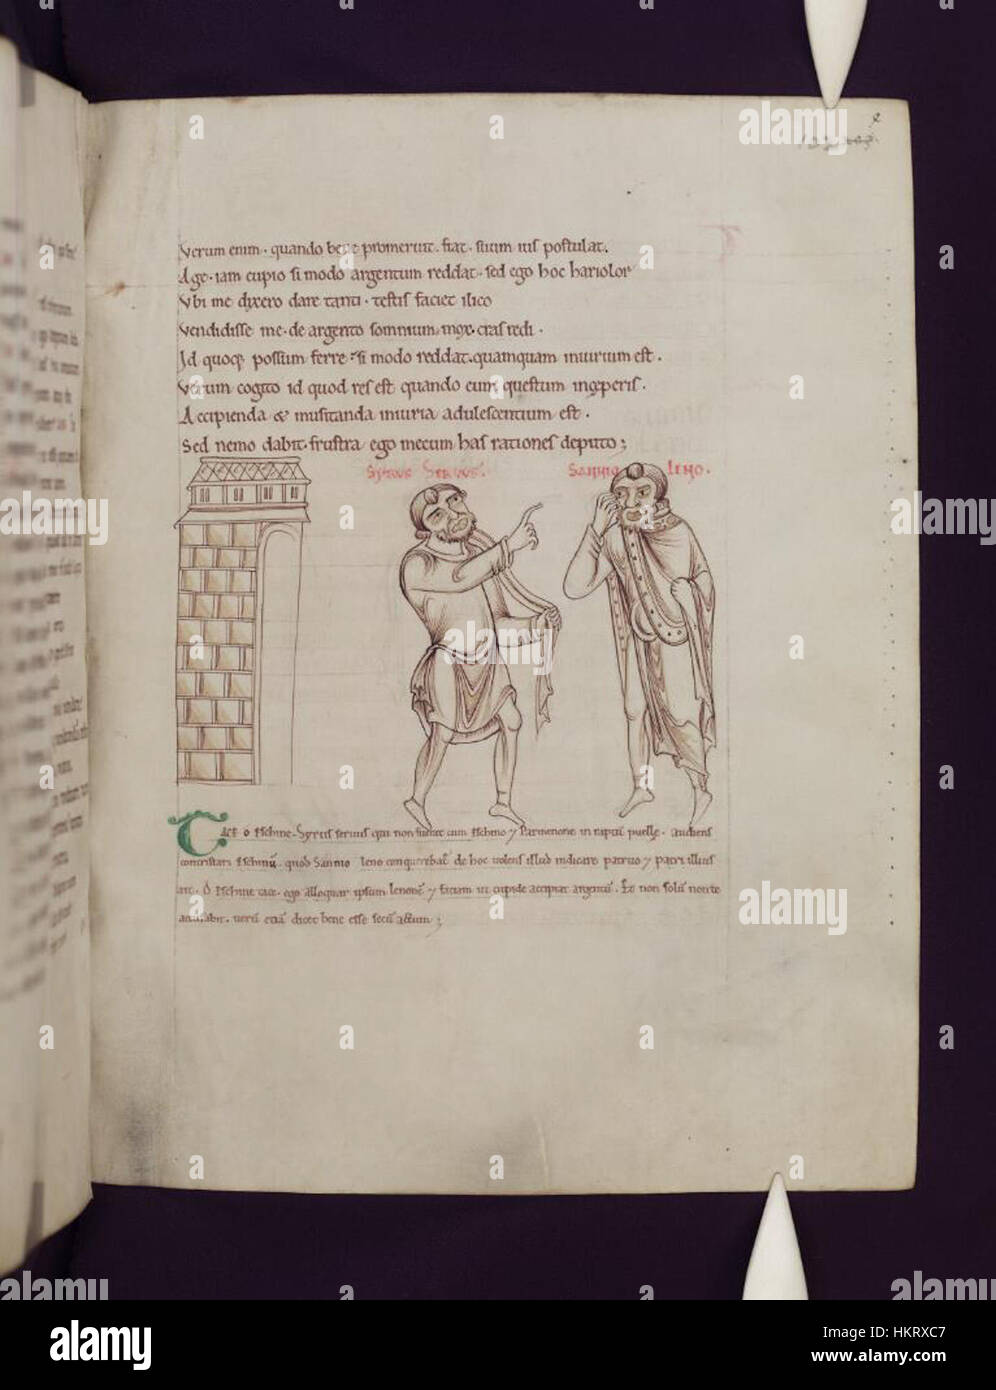 Verum enim. quando bene promeruit. fiat. suum ius postulat.
Age. iam cupio si modo argentum reddat. sed ego hoc hariolor
Vbi me dixero dare tanti. testis faciet ilico
Vendidisse me. de argento somnium. mox. cras redi.
Id quoq; possum ferre. si modo reddat. quamquam iniurium est.
Verum cogito id quod res est quando eum questum inceperis.
Accipienda & musitanda iniuria adulescentium est.
Sed nemo dabit. frustra ego mecum has rationes deputo;
Syrus Servus. Sannio Leno.
Tace o Eschine. Syrus servus qui non fuerat cum Eschino 7 Parmenone in raptu puelle. audiens
contristari Eschinu. quod Sannio leno conquerebat de hoc volens illud indicare patruo 7 patri illius
O Eschine tace. ego alloquar ipsum lenone 7 faciam ut cupide accipiat argentu. Et non solu
veru etia dicet bene esse secu actum;
alamy
alamy
Image ID: HKRXC7
www.alamy.com